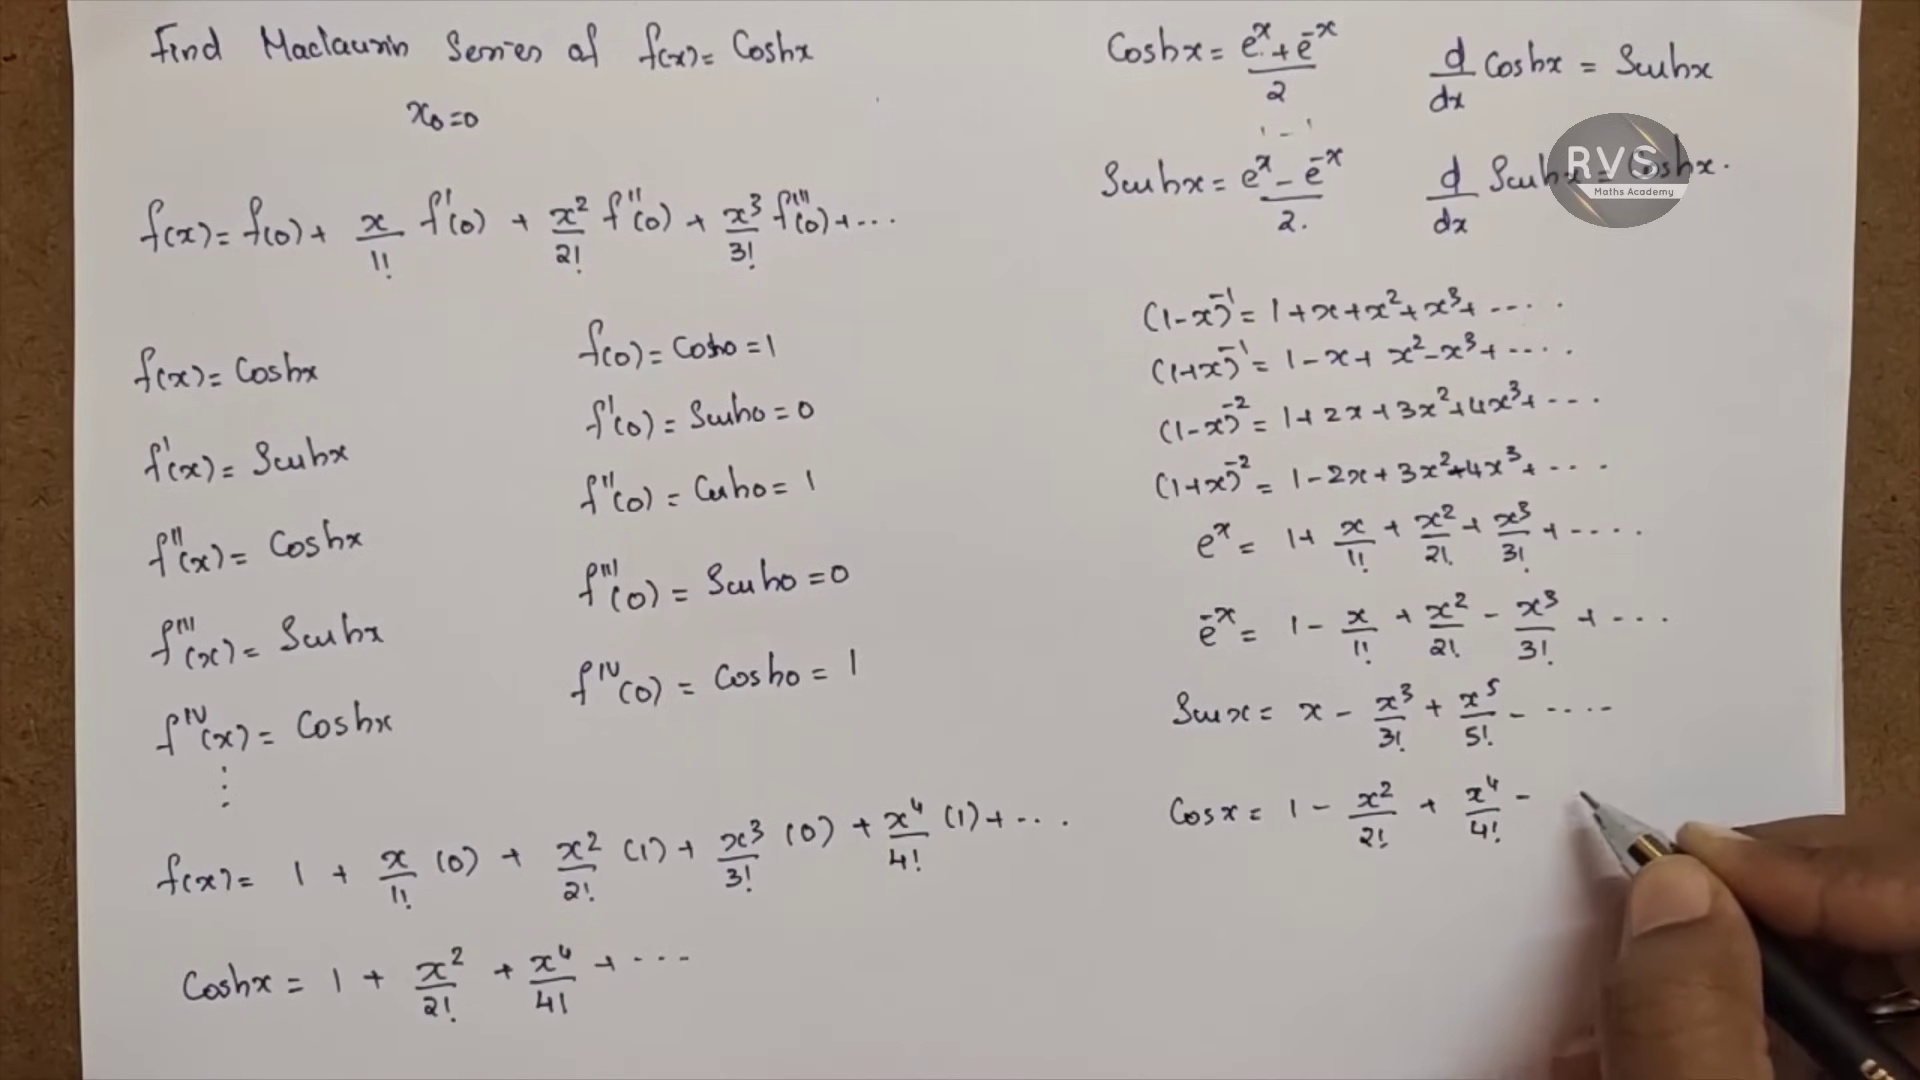 Find Maclaurin Series of f(x) = Coshx
x₀=0
f(x) = f(0) + x/1! f'(0) + x²/2! f''(0) + x³/3! f'''(0) + ...
f(x) = Coshx
f'(x) = Sinhx
f''(x) = Coshx
f'''(x) = Sinhx
f^IV(x) = Coshx
⋮
f(0) = Cosh0 = 1
f'(0) = Sinh0 = 0
f''(0) = Cosh0 = 1
f'''(0) = Sinh0 = 0
f^IV(0) = Cosh0 = 1
f(x) = 1 + x/1! (0) + x²/2! (1) + x³/3! (0) + x⁴/4! (1) + ...
Coshx = 1 + x²/2! + x⁴/4! + ...
Coshx = (e^x + e^-x)/2
d/dx Coshx = Sinhx
Sinhx = (e^x - e^-x)/2.
d/dx Sinhx = Coshx.
RVS
Maths Academy
(1-x)^-1 = 1+x+x²+x³+ ....
(1+x)^-1 = 1-x+x²-x³+ ....
(1-x)^-2 = 1+2x+3x²+4x³+ ...
(1+x)^-2 = 1-2x+3x²-4x³+ ...
e^x = 1+ x/1! + x²/2! + x³/3! + ....
e^-x = 1- x/1! + x²/2! - x³/3! + ...
Sinx = x - x³/3! + x⁵/5! - ....
Cosx = 1 - x²/2! + x⁴/4! -